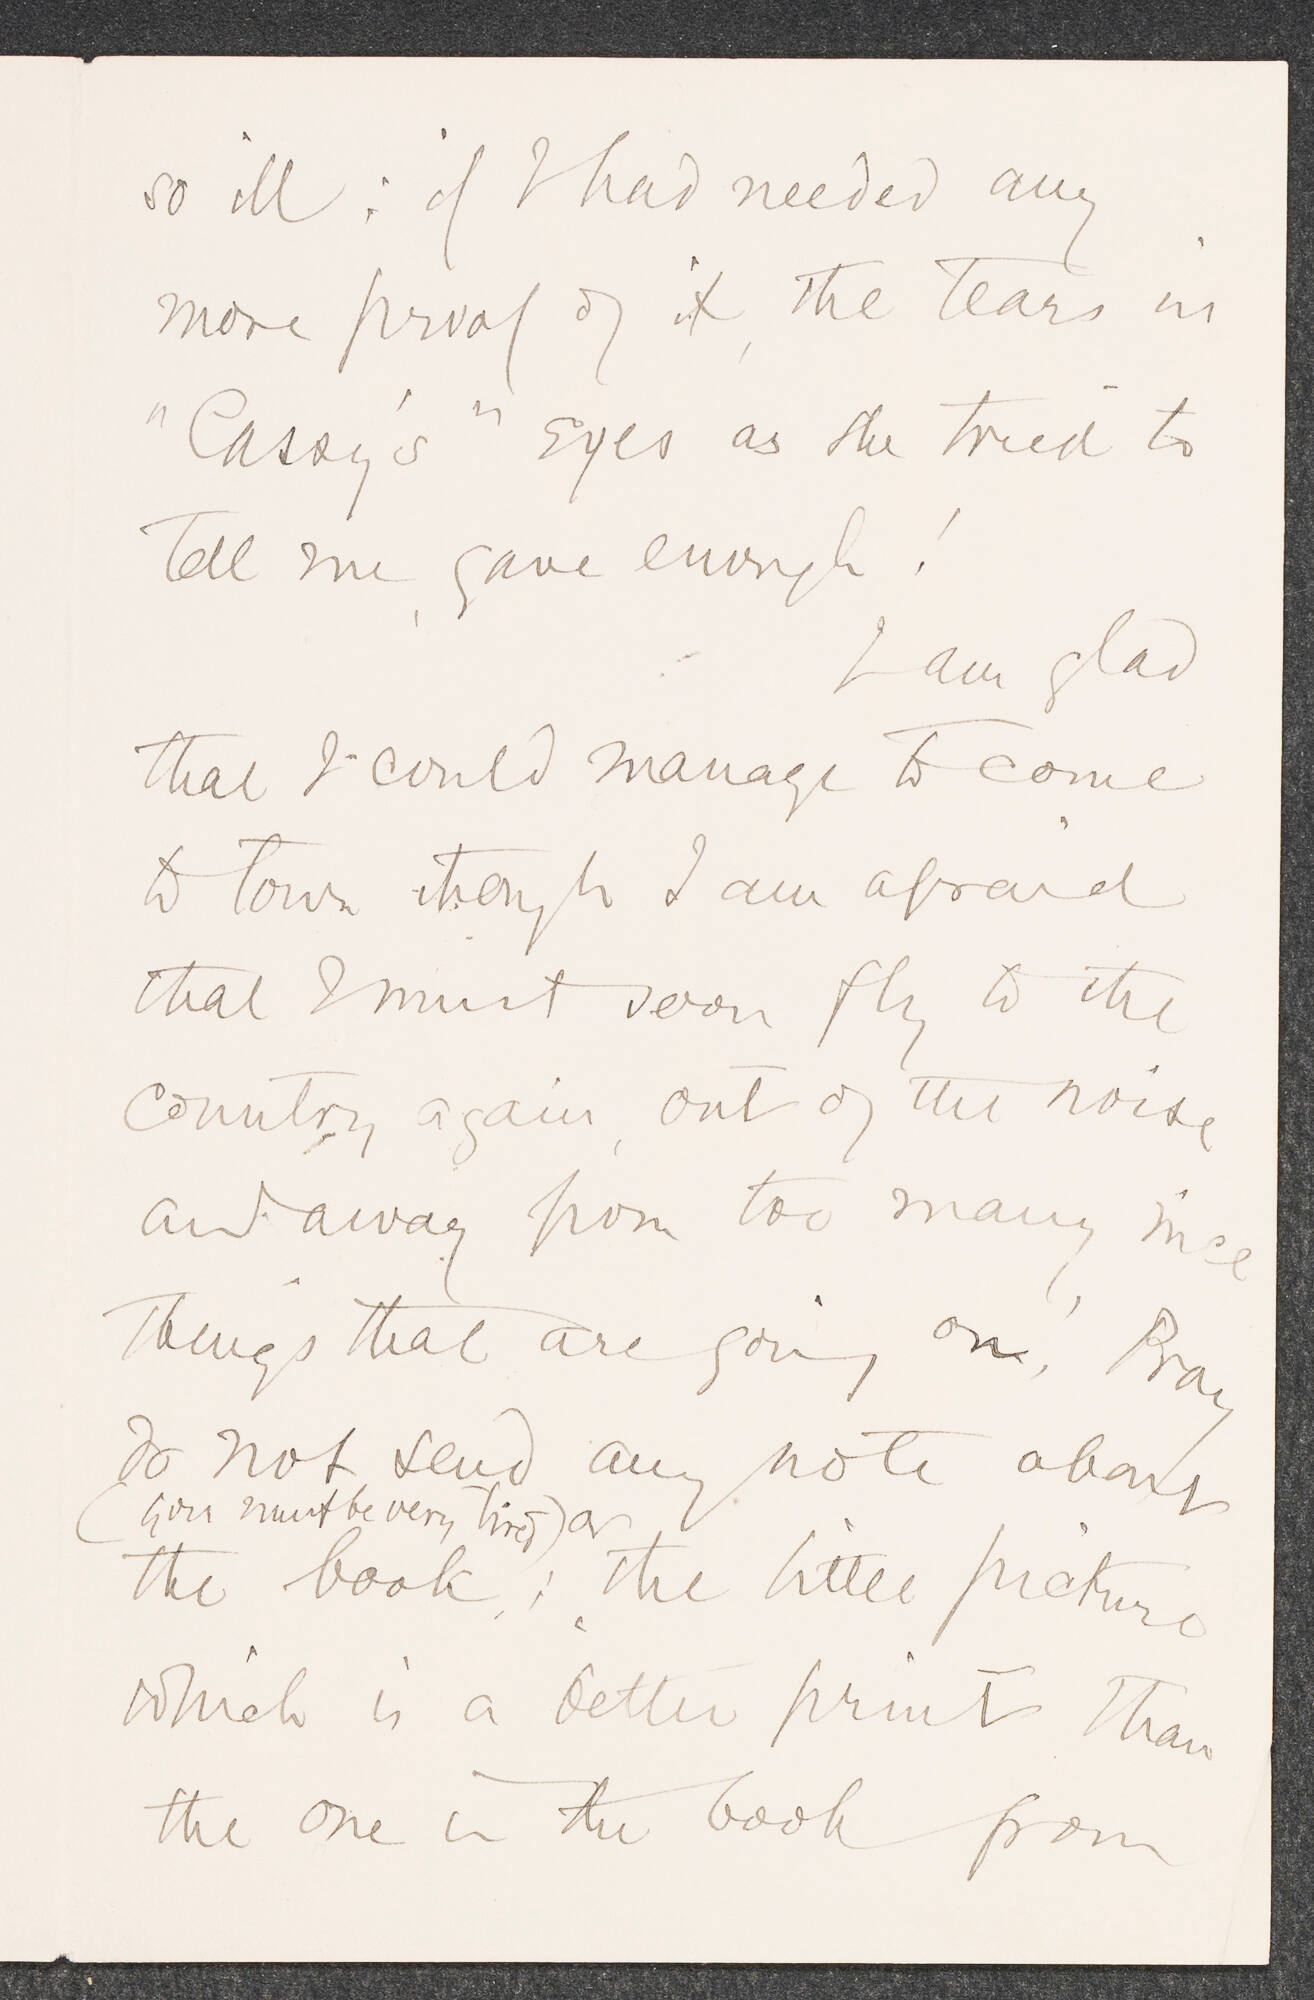 so ill : if I had needed any
more proof of it, the tears in
"Cassy's" eyes as she tried to
tell me, gave enough!
I am glad
that I could manage to come
to town though I am afraid
that I must soon fly to the
country again, out of the noise
and away from too many nice
things that are going on! Pray
do not send any note about
(you must be very tired) or
the book ; the little picture
which is a better print than
the one in the book from